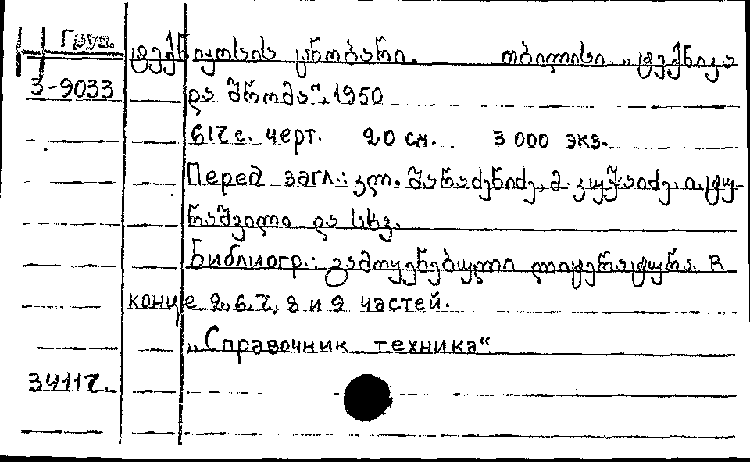 Груз.
ტექნიკოსის ცნობარი. თბილისი „ტექნიკა
3-9033 და შრომა“, 1950
617 с. черт. 20 см. 3 000 экз.
Перед загл.: კლ. შარაძენიძე, გ. კუჭაიძე, ი. ტყ-
რაშვილი და სხვ.
Библиогр.: გამოყენებული ლიტერატურა в
конце 2, 6, 7, 8 и 9 частей.
„Справочник техника“
34117.